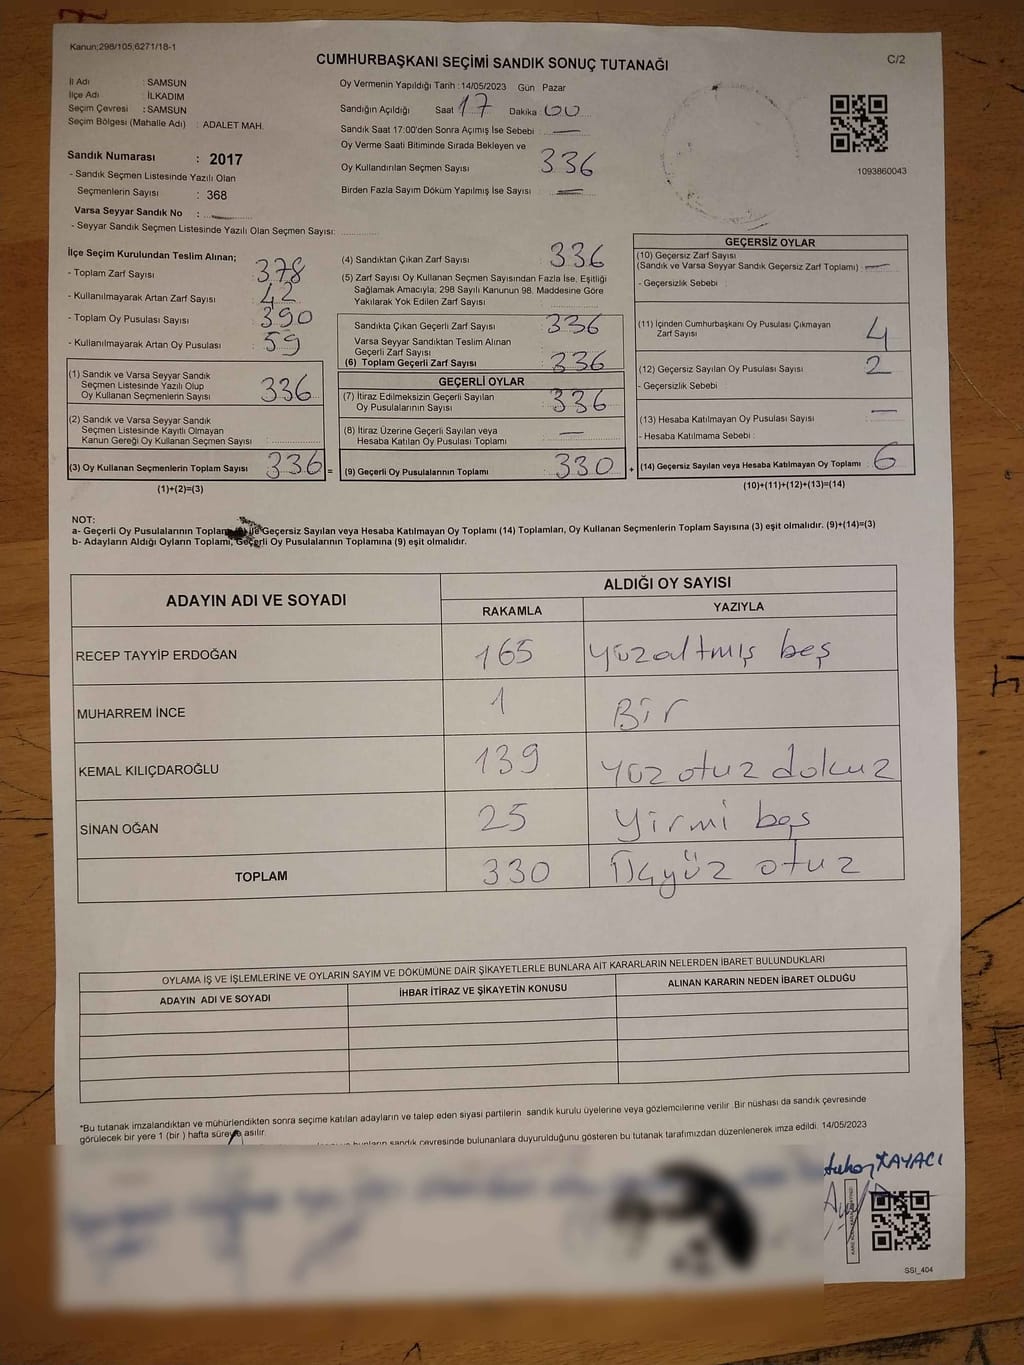 Kanun;298/105,6271/18-1
C/2
CUMHURBAŞKANI SEÇİMİ SANDIK SONUÇ TUTANAĞI
İl Adı : SAMSUN
İlçe Adı : İLKADIM
Seçim Çevresi : SAMSUN
Seçim Bölgesi (Mahalle Adı) : ADALET MAH.
Sandık Numarası : 2017
- Sandık Seçmen Listesinde Yazılı Olan
Seçmenlerin Sayısı : 368
Varsa Seyyar Sandık No :
- Seyyar Sandık Seçmen Listesinde Yazılı Olan Seçmen Sayısı:
Oy Vermenin Yapıldığı Tarih : 14/05/2023 Gün Pazar
Sandığın Açıldığı Saat 17 Dakika : 00
Sandık Saat 17:00'den Sonra Açımış İse Sebebi : —
Oy Verme Saati Bitiminde Sırada Bekleyen ve
Oy Kullandırılan Seçmen Sayısı : 336
Birden Fazla Sayım Döküm Yapılmış İse Sayısı : —
1093860043
İlçe Seçim Kurulundan Teslim Alınan;
- Toplam Zarf Sayısı : 378
- Kullanılmayarak Artan Zarf Sayısı : 42
- Toplam Oy Pusulası Sayısı : 390
- Kullanılmayarak Artan Oy Pusulası : 59
(1) Sandık ve Varsa Seyyar Sandık
Seçmen Listesinde Yazılı Olup
Oy Kullanan Seçmenlerin Sayısı : 336
(2) Sandık ve Varsa Seyyar Sandık
Seçmen Listesinde Kayıtlı Olmayan
Kanun Gereği Oy Kullanan Seçmen Sayısı :
(3) Oy Kullanan Seçmenlerin Toplam Sayısı : 336 =
(1)+(2)=(3)
(4) Sandıktan Çıkan Zarf Sayısı : 336
(5) Zarf Sayısı Oy Kullanan Seçmen Sayısından Fazla İse, Eşitliği
Sağlamak Amacıyla; 298 Sayılı Kanunun 98. Maddesine Göre
Yakılarak Yok Edilen Zarf Sayısı :
Sandıkta Çıkan Geçerli Zarf Sayısı : 336
Varsa Seyyar Sandıktan Teslim Alınan
Geçerli Zarf Sayısı :
(6) Toplam Geçerli Zarf Sayısı : 336
GEÇERLİ OYLAR
(7) İtiraz Edilmeksizin Geçerli Sayılan
Oy Pusulalarının Sayısı : 336
(8) İtiraz Üzerine Geçerli Sayılan veya
Hesaba Katılan Oy Pusulası Toplamı : —
(9) Geçerli Oy Pusulalarının Toplamı : 330 +
GEÇERSİZ OYLAR
(10) Geçersiz Zarf Sayısı
(Sandık ve Varsa Seyyar Sandık Geçersiz Zarf Toplamı) : —
- Geçersizlik Sebebi :
(11) İçinden Cumhurbaşkanı Oy Pusulası Çıkmayan
Zarf Sayısı : 4
(12) Geçersiz Sayılan Oy Pusulası Sayısı : 2
- Geçersizlik Sebebi
(13) Hesaba Katılmayan Oy Pusulası Sayısı : —
- Hesaba Katılmama Sebebi :
(14) Geçersiz Sayılan veya Hesaba Katılmayan Oy Toplamı : 6
(10)+(11)+(12)+(13)=(14)
NOT:
a- Geçerli Oy Pusulalarının Toplamı ile Geçersiz Sayılan veya Hesaba Katılmayan Oy Toplamı (14) Toplamları, Oy Kullanan Seçmenlerin Toplam Sayısına (3) eşit olmalıdır. (9)+(14)=(3)
b- Adayların Aldığı Oyların Toplamı, Geçerli Oy Pusulalarının Toplamına (9) eşit olmalıdır.
ADAYIN ADI VE SOYADI ALDIĞI OY SAYISI
RAKAMLA YAZIYLA
RECEP TAYYİP ERDOĞAN 165 yüzaltmış beş
MUHARREM İNCE 1 Bir
KEMAL KILIÇDAROĞLU 139 yüz otuz dokuz
SİNAN OĞAN 25 yirmi beş
TOPLAM 330 üçyüz otuz
OYLAMA İŞ VE İŞLEMLERİNE VE OYLARIN SAYIM VE DÖKÜMÜNE DAİR ŞİKAYETLERLE BUNLARA AİT KARARLARIN NELERDEN İBARET BULUNDUKLARI
ADAYIN ADI VE SOYADI İHBAR İTİRAZ VE ŞİKAYETİN KONUSU ALINAN KARARIN NEDEN İBARET OLDUĞU
*Bu tutanak imzalandıktan ve mühürlendikten sonra seçime katılan adayların ve talep eden siyasi partilerin sandık kurulu üyelerine veya gözlemcilerine verilir. Bir nüshası da sandık çevresinde
görülecek bir yere 1 (bir) hafta süreyle asılır.
bunların sandık çevresinde bulunanlara duyurulduğunu gösteren bu tutanak tarafımızdan düzenlenerek imza edildi. 14/05/2023
KAYACI
SSI_404